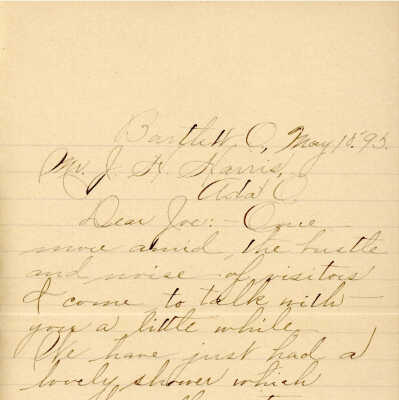 Bartlett, O., May 15, '93.
Mr. J. H. Harris,
Ada O.
Dear Joe: - Once
more amid the bustle
and noise of visitors
I come to talk with
you a little while.
We have just had a
lovely shower which